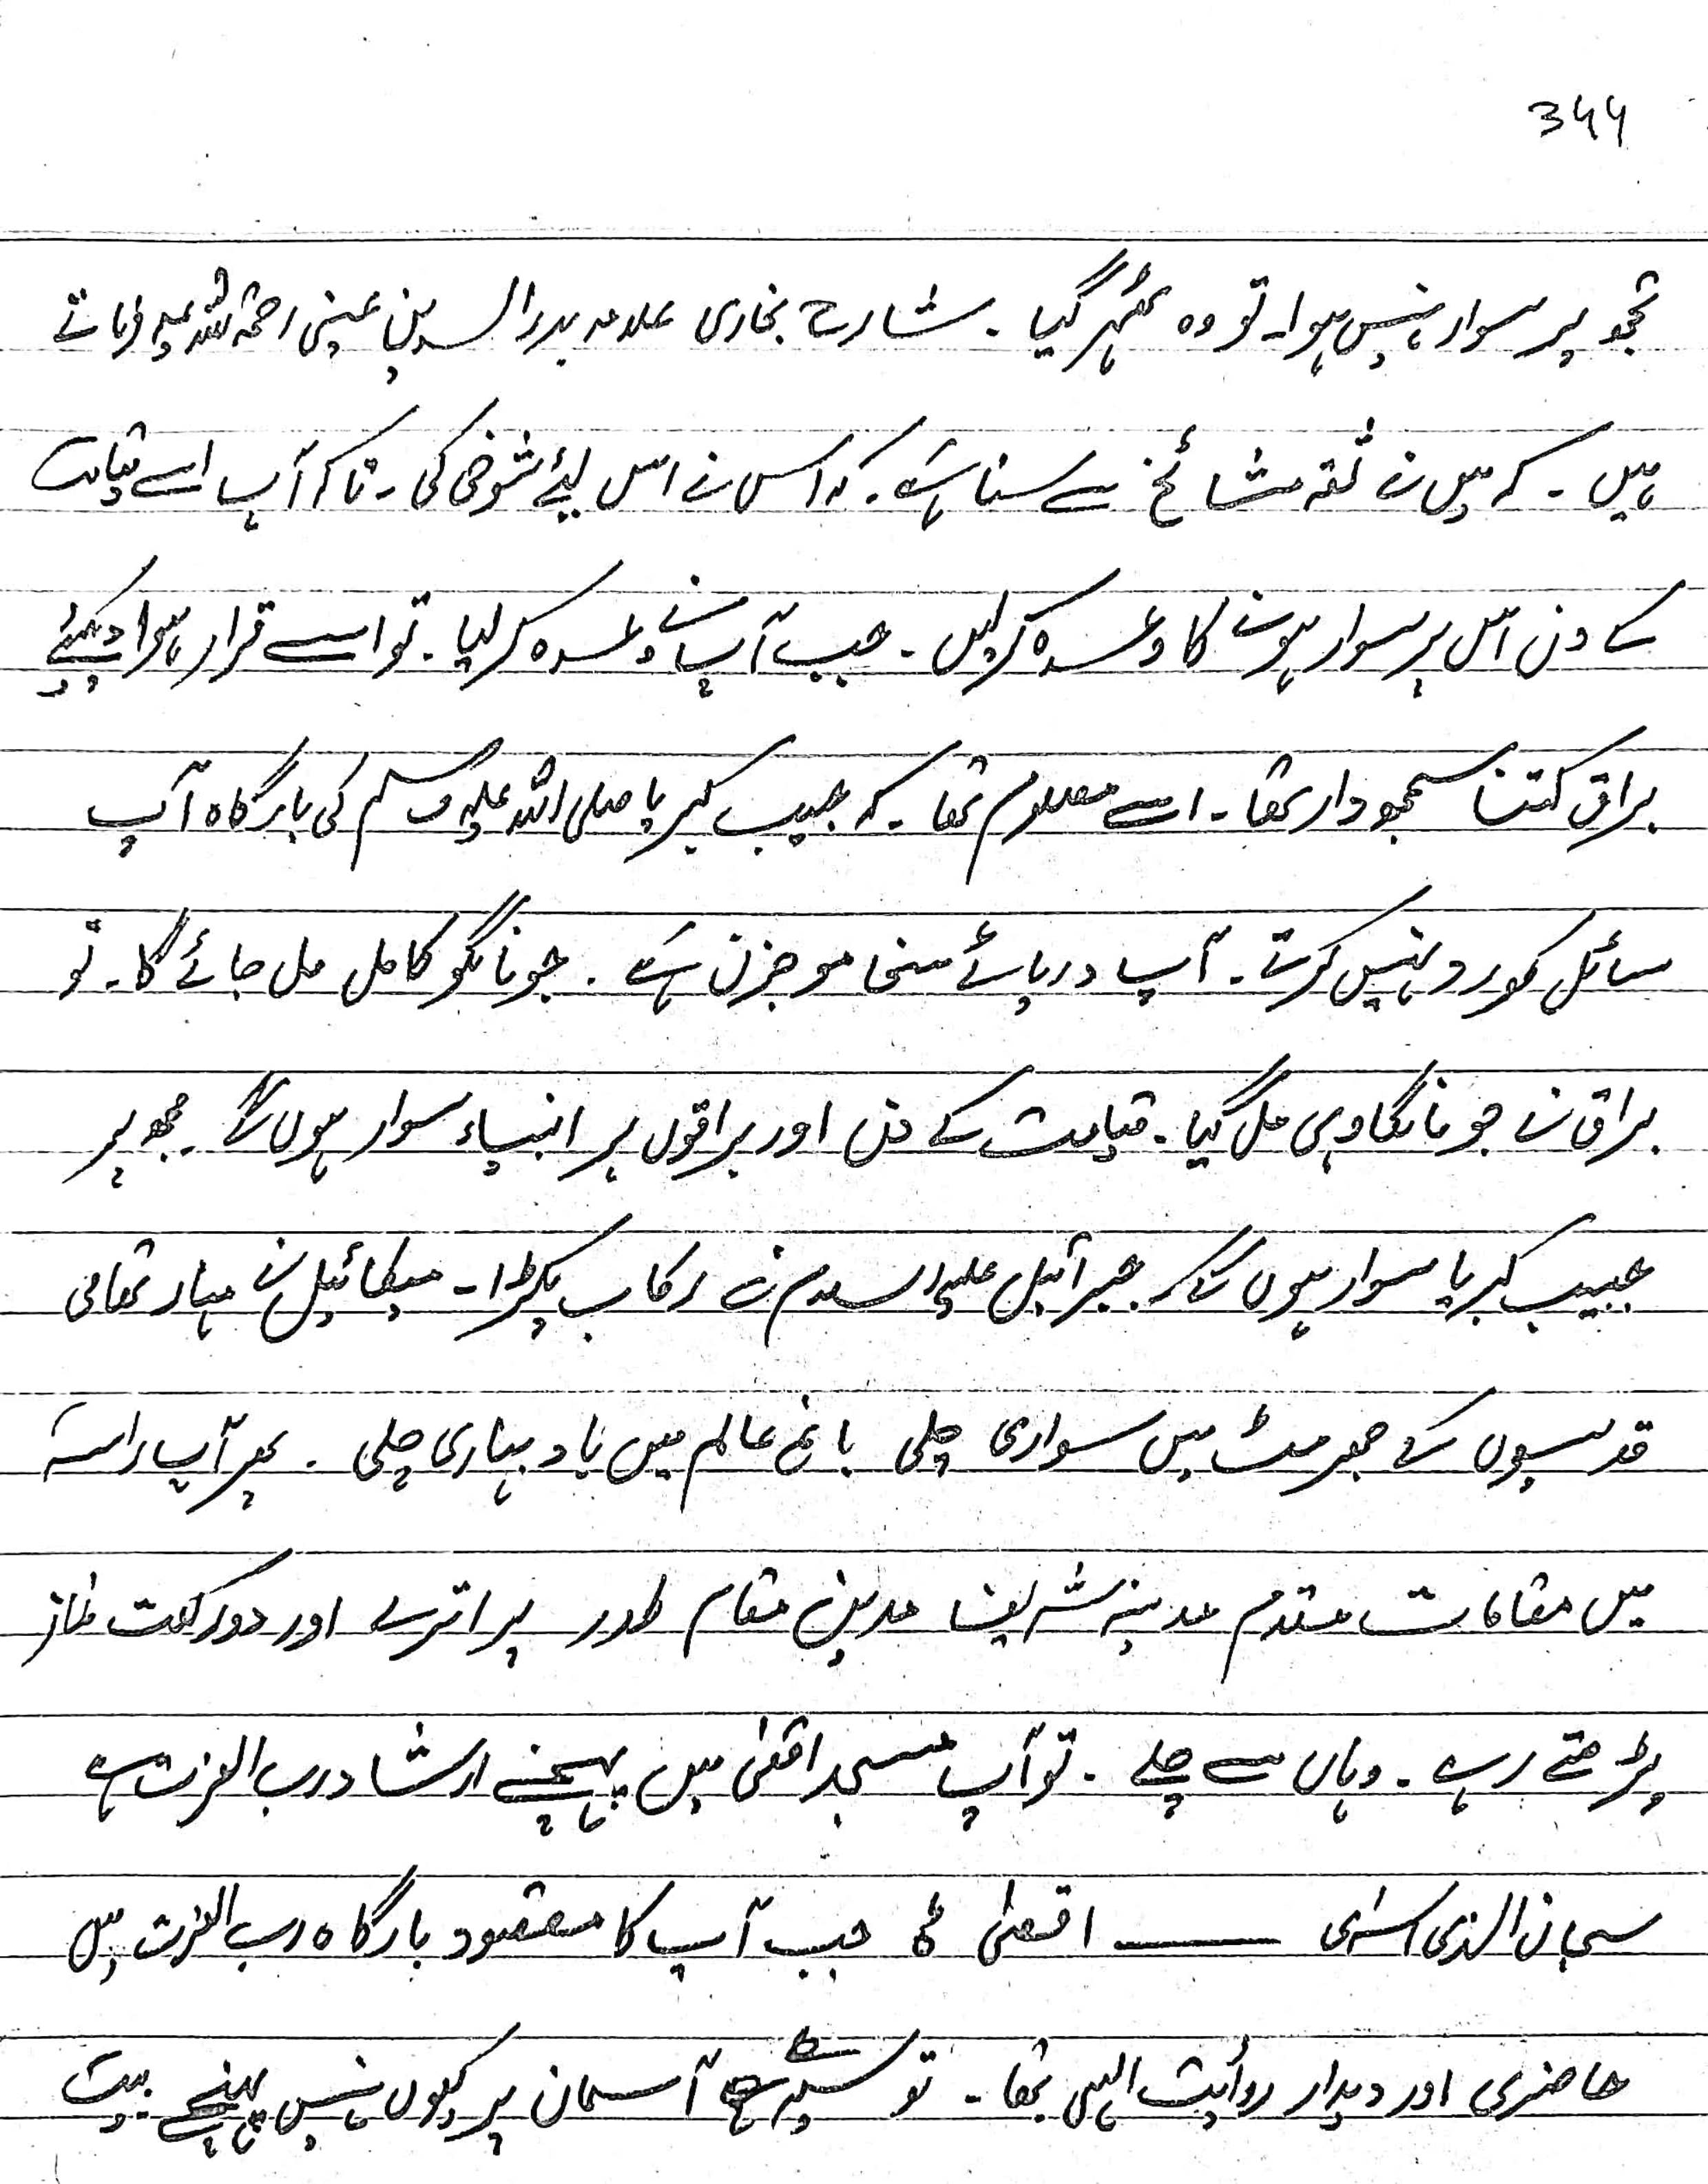 344
تجھ پر سوار نہیں ہوا۔ تو وہ ٹھہر گیا۔ شارح بخاری علامہ بدرالدین عینی رحمۃ اللہ علیہ فرماتے
ہیں۔ کہ میں نے ثقہ مشائخ سے سنا ہے۔ کہ اس نے اس لیئے شوخی کی۔ تاکہ آپ اسے قیامت
کے دن اس پر سوار ہونے کا وعدہ کرلیں۔ جب آپ نے وعدہ کر لیا۔ تو اسے قرار ہوا دیکھئے
براق کتنا سمجھودار تھا۔ اسے معلوم تھا۔ کہ حبیب کبریا صلی اللہ علیہ وسلم کی بارگاہ آپ
سائل کو رد نہیں کرتے۔ آپ دریائے سخا موجزن ہے۔ جو مانگو کا مل مل جائے گا۔ تو
براق نے جو مانگا وہی مل گیا۔ قیامت کے دن اور براقوں پر انبیاء سوار ہوں گے۔ مجھ پر
حبیب کبریا سوار ہوں گے۔ جبرائیل علیہ السلام نے رکاب پکڑا۔ میکائیل نے مہار تھامی
قدسیوں کے جھرمٹ میں سواری چلی باغ عالم میں باد بہاری چلی۔ پھر آپ راستہ
میں مقامات متقدم مدینہ شریف مدین مقام طور پر اترے اور دو رکعت نماز
پڑھتے رہے۔ وہاں سے چلے۔ تو آپ مسجد اقصیٰ میں پہنچے ارشاد رب العزت ہے
سبحان الذی اسریٰ ——— اقصیٰ جب آپ کا مقصود بارگاہ رب العزت میں
حاضری اور دیدار روأیت الہی تھا۔ تو سیدھے آسمان پر کیوں نہیں پہنچے بیت